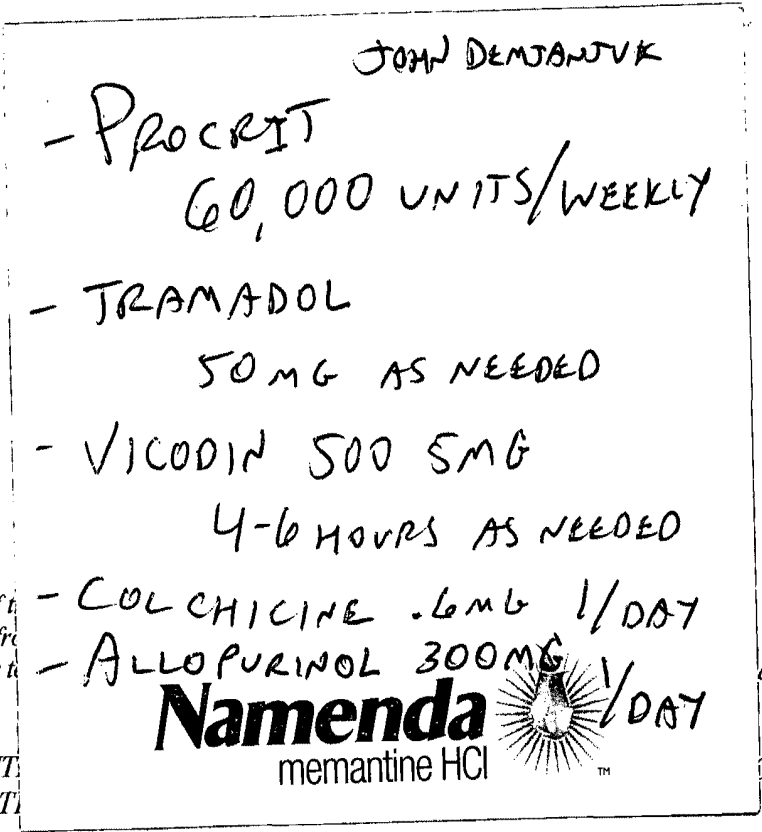 JOHN DEMJANJUK
- PROCRIT
60,000 UNITS/WEEKLY
- TRAMADOL
50 MG AS NEEDED
- VICODIN 500 5MG
4-6 HOURS AS NEEDED
- COLCHICINE .6MG 1/DAY
- ALLOPURINOL 300MG 1/DAY
Namenda
memantine HCl
TM